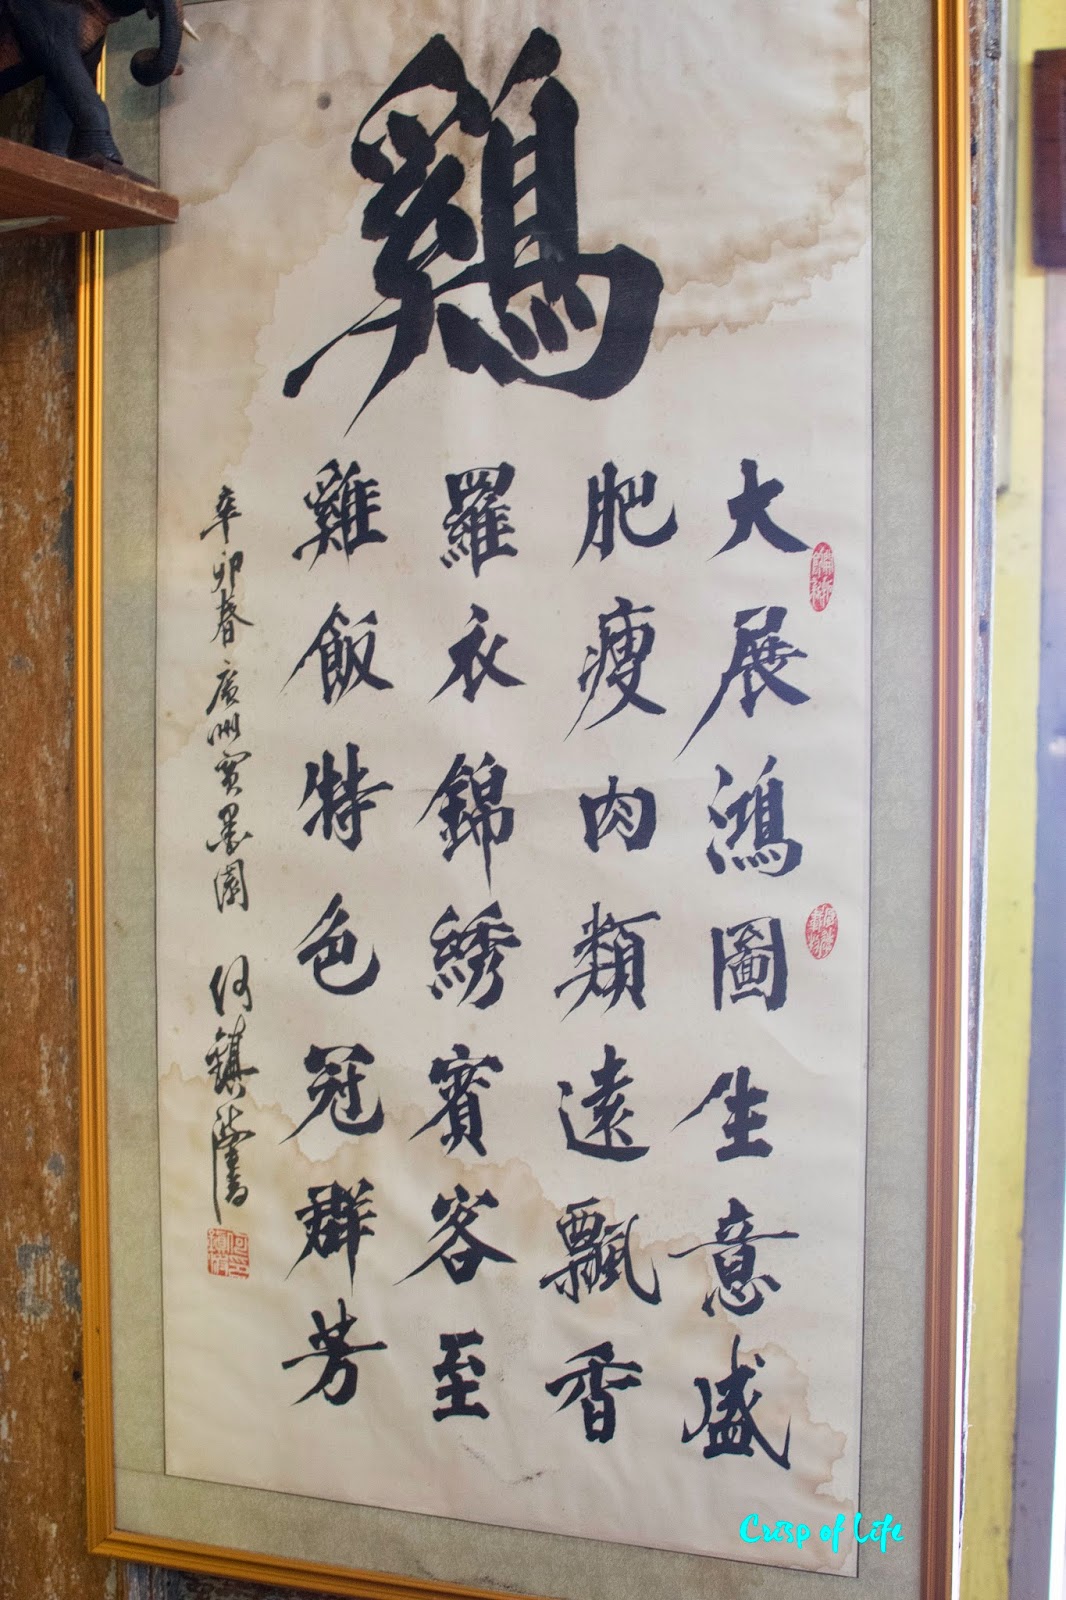 鷄
大展鴻圖生意盛
肥瘦肉類遠飄香
羅衣錦綉賓客至
雞飯特色冠群芳
辛卯春廣州寶墨園 何鎮
Crisp of Life